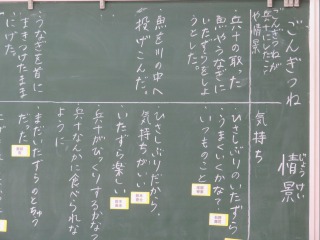 ごんぎつね
情景
じょうけい
ごんぎつねが
兵十にしたこと
や情景
気持ち
・兵十の取った
魚やうなぎに
いたずらをしよ
うとした。
・魚を川の中へ
投げこんだ。
・うなぎを首に
まきつけたまま
にげた。
・ひさしぶりのいたずら
うまくいくかな?
・いつものこと
・ひさしぶりだから、
気持ちがいい
・いたずら楽しい
・兵十がびっくりするかな?
・兵十なんかに食べられな
ように。
・まだ、いたずらのとちゅう
だった